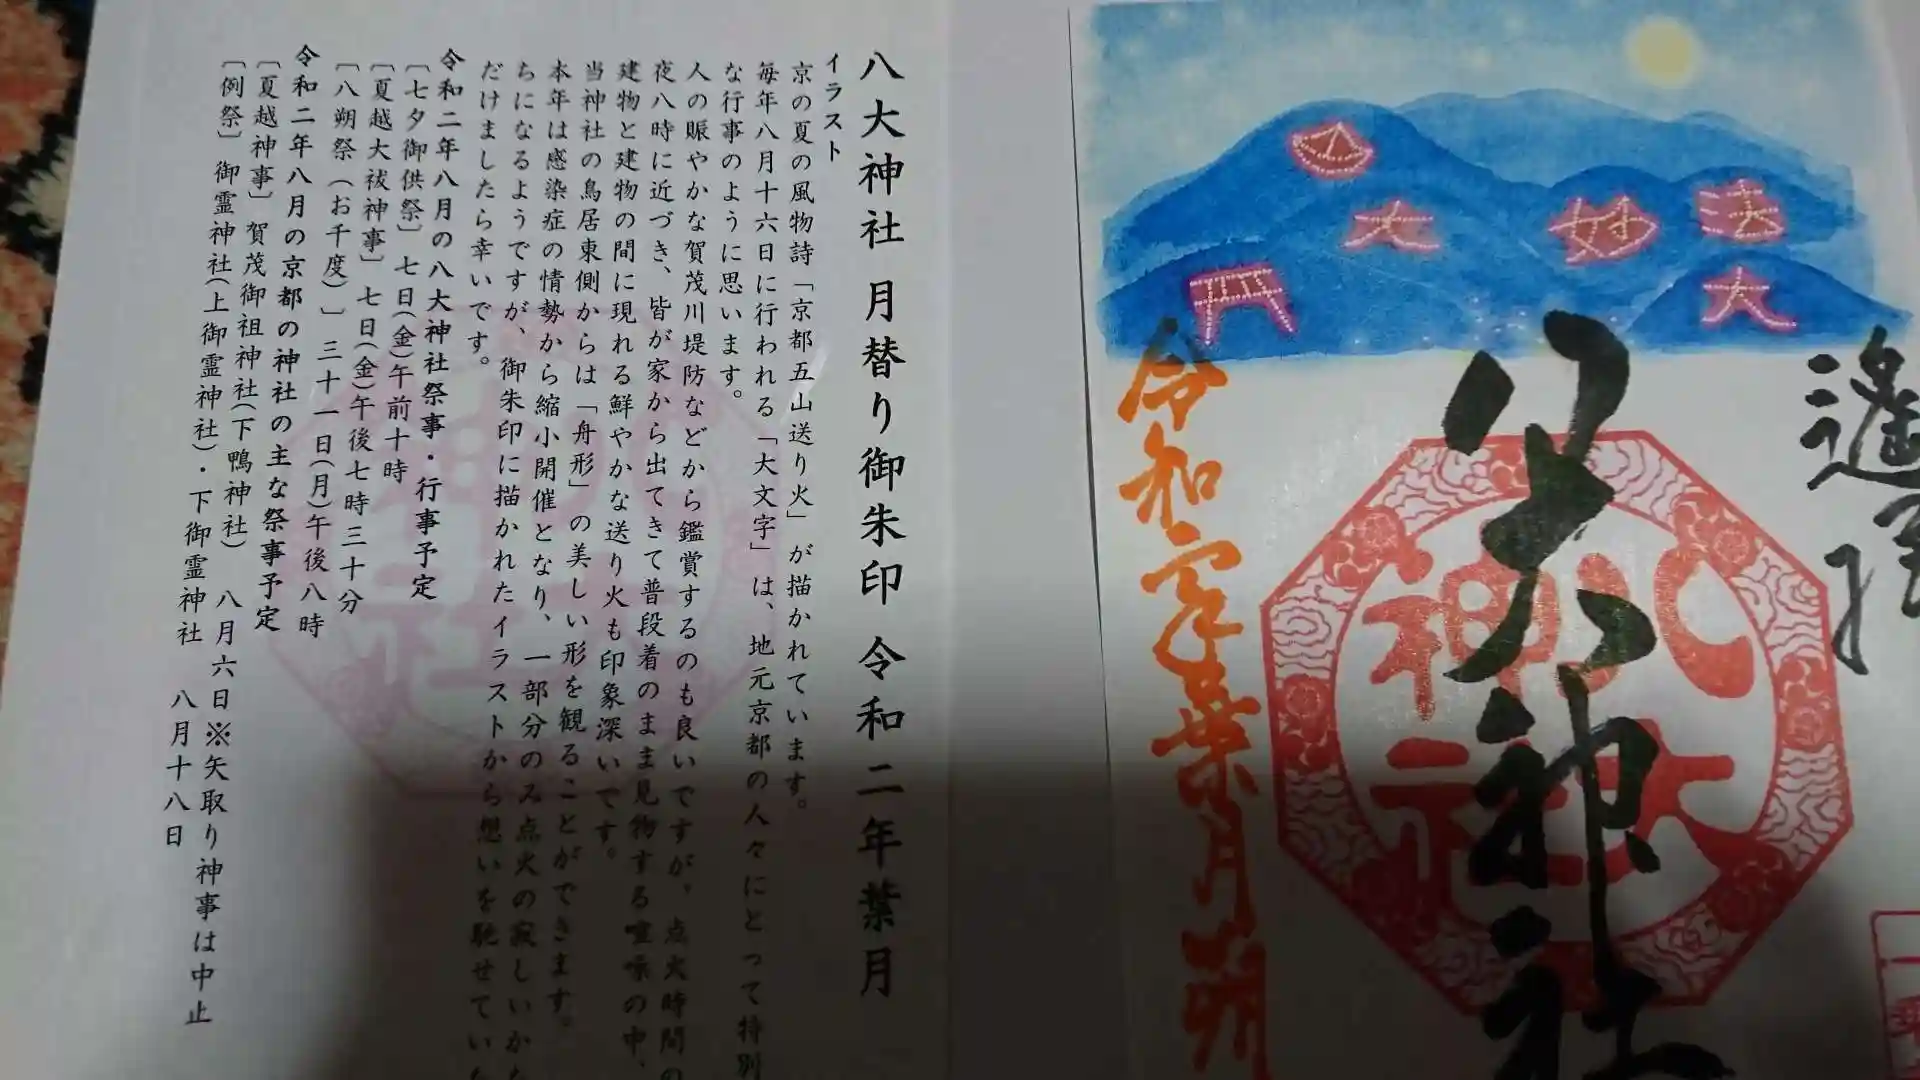 八大神社 月替り御朱印 令和二年葉月
イラスト
京の夏の風物詩「京都五山送り火」が描かれています。
毎年八月十六日に行われる「大文字」は、地元京都の人々にとって特別
な行事のように思います。
人の賑やかな賀茂川堤防などから鑑賞するのも良いですが、点火時間の
夜八時に近づき、皆が家から出てきて普段着のまま見物する喧噪の中、
建物と建物の間に現れる鮮やかな送り火も印象深いです。
当神社の鳥居東側からは「舟形」の美しい形を観ることができます。
本年は感染症の情勢から縮小開催となり、一部分のみ点火の寂しいかた
ちになるようですが、御朱印に描かれたイラストから想いを馳せていた
だけましたら幸いです。
令和二年八月の八大神社祭事・行事予定
〔七夕御供祭〕七日(金)午前十時
〔夏越大祓神事〕七日(金)午後七時三十分
〔八朔祭(お千度)〕三十一日(月)午後八時
令和二年八月の京都の神社の主な祭事予定
〔夏越神事〕賀茂御祖神社(下鴨神社) 八月六日※矢取り神事は中止
〔例祭〕御霊神社(上御霊神社)・下御霊神社 八月十八日
大
妙
法
大
遥拝
八大神社
八大神社
令和二年葉月朔